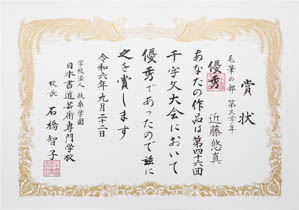 賞状
毛筆の部 第三学年
優秀 近藤悠真
あなたの作品は第四十六回
千字文大会において
優秀であったので茲に
之を賞します
令和六年九月二十二日
学校法人 扶桑学園
日本書道芸術専門学校
校長 石橋智子